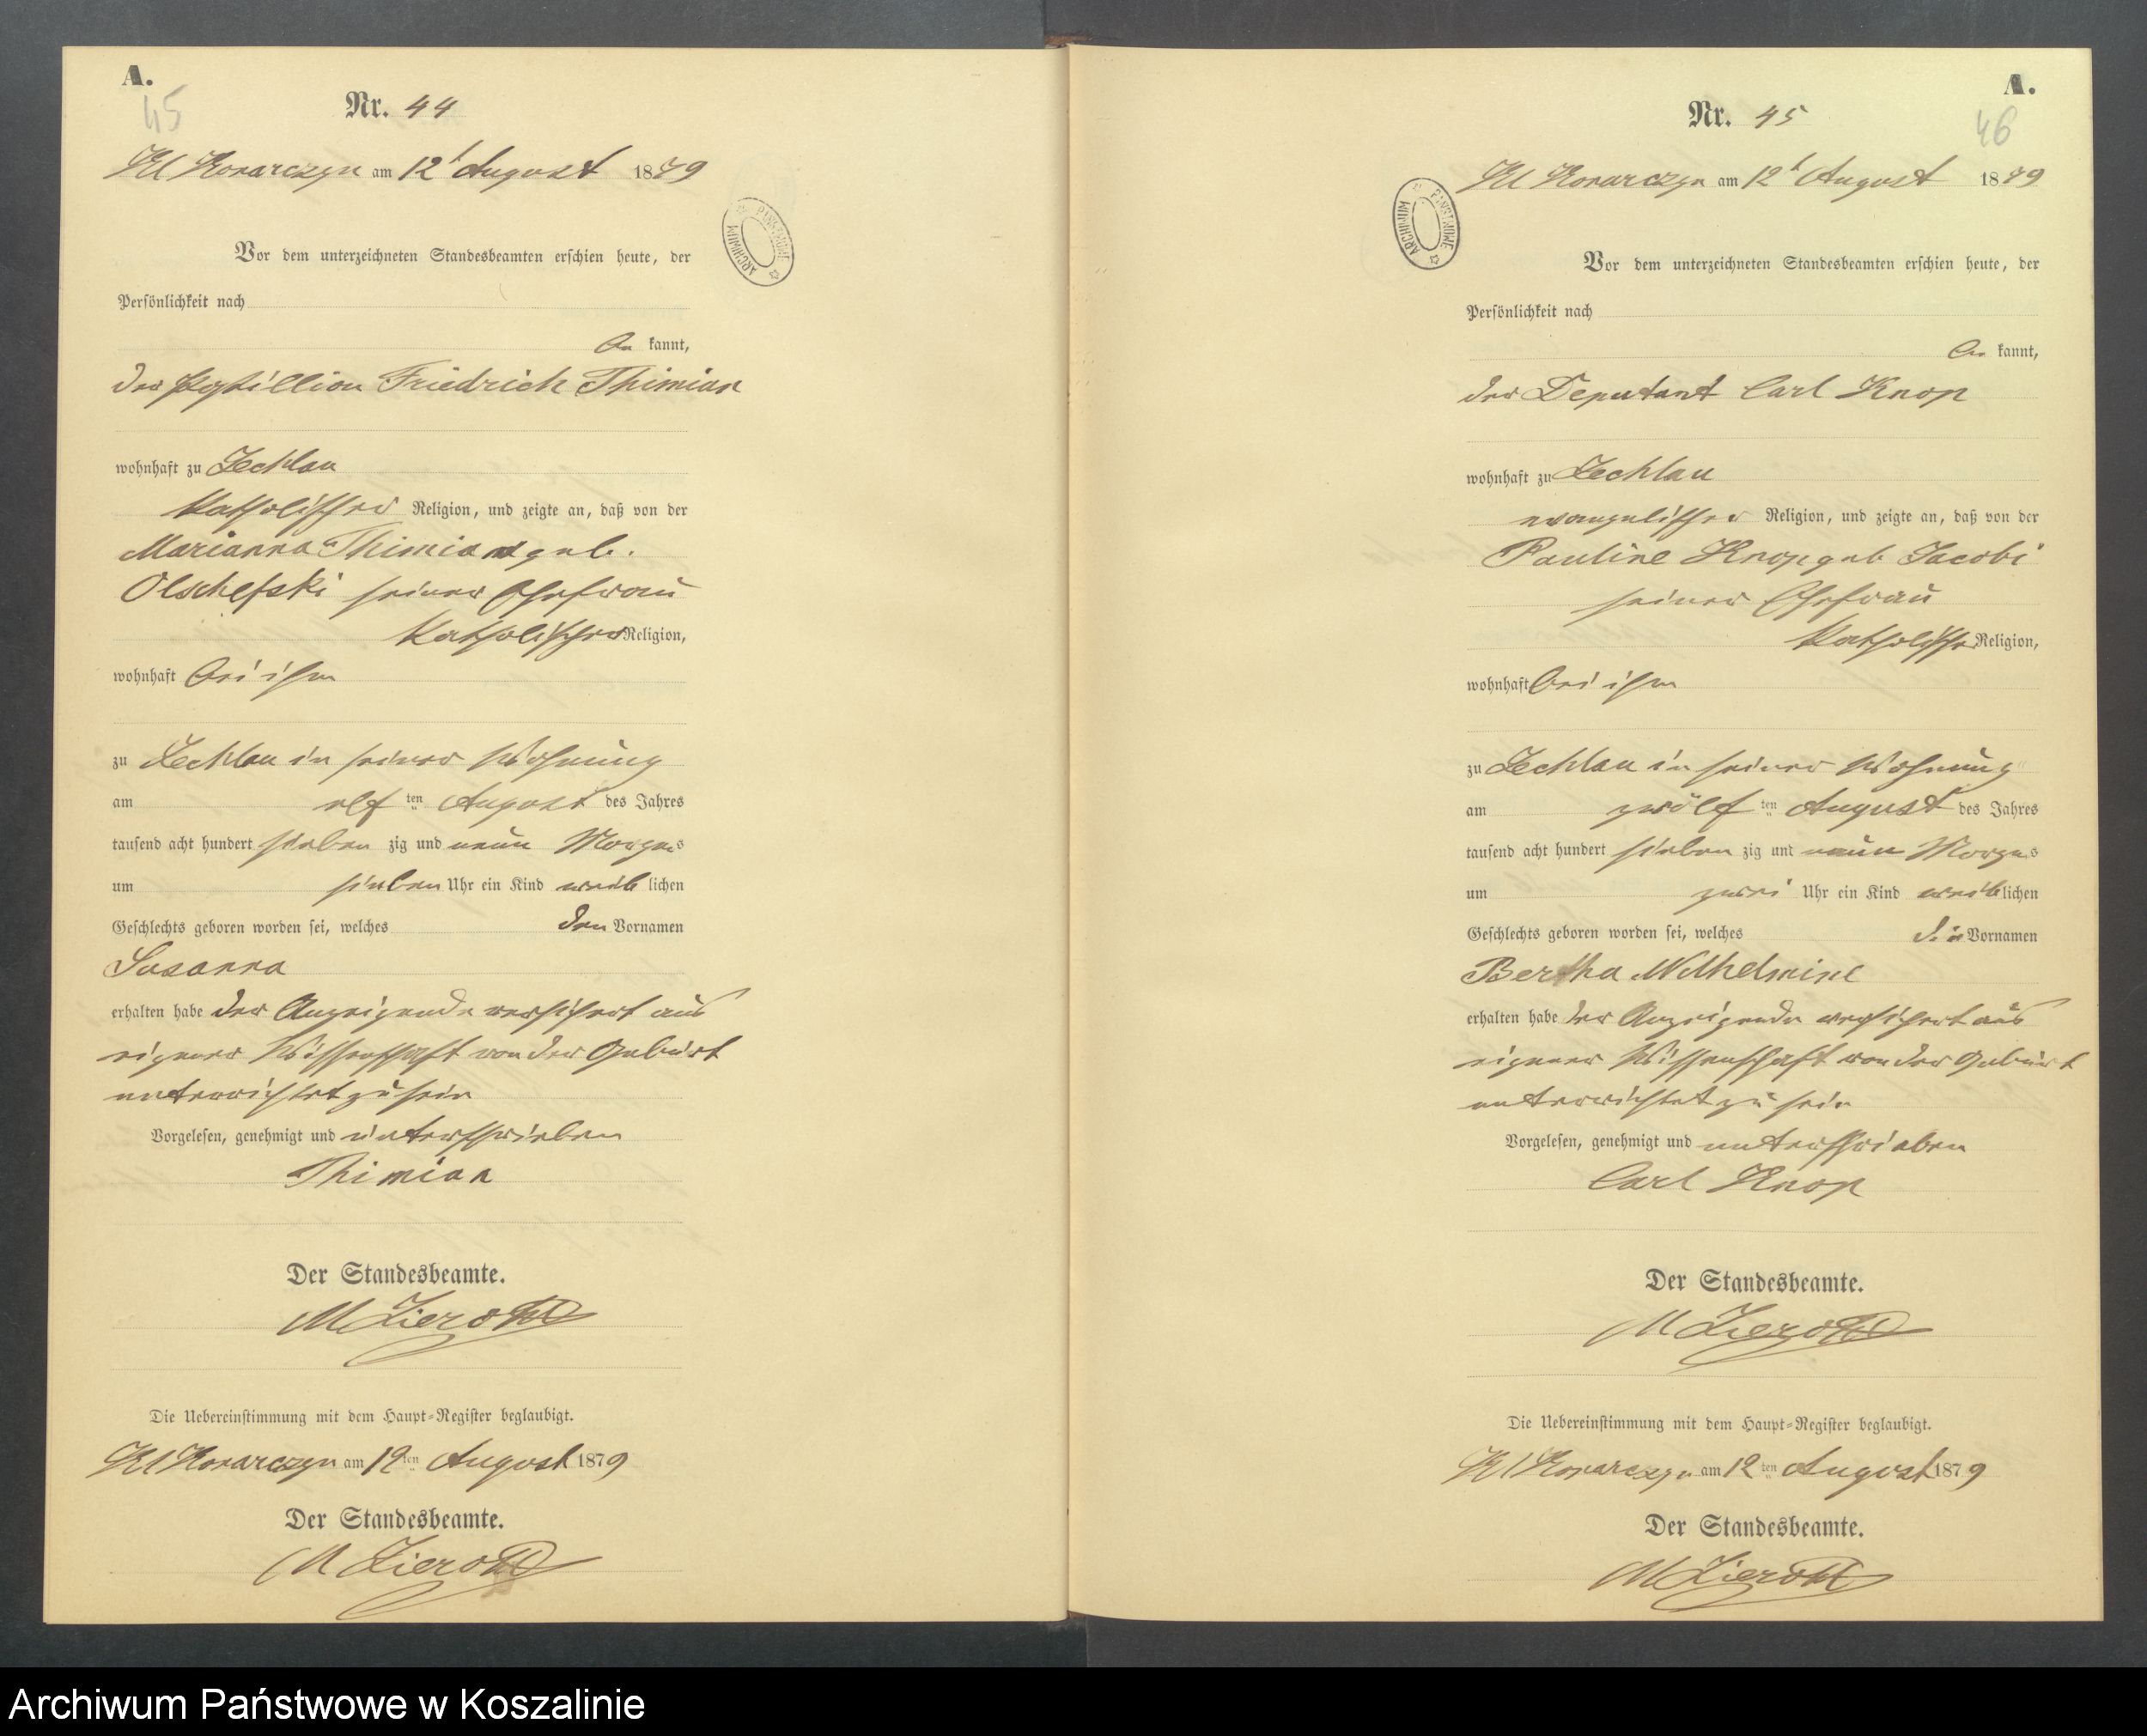 A.
45
Nr. 44
Kl Konarczyn am 12t August 1879
ARCHIWUM PAŃSTWOWE
Vor dem unterzeichneten Standesbeamten erschien heute, der
Persönlichkeit nach
be kannt,
der Postillion Friedrich Thimian
wohnhaft zu Zechlau
katholischer Religion, und zeigte an, daß von der
Marianna Thimian geb.
Olschefski seiner Ehefrau
katholischer Religion,
wohnhaft bei ihm
zu Zechlau in seiner Wohnung
am elf ten August des Jahres
tausend acht hundert sieben zig und neun Morgens
um sieben Uhr ein Kind weib lichen
Geschlechts geboren worden sei, welches den Vornamen
Susanna
erhalten habe der Anzeigende versichert aus
eigener Wissenschaft von der Geburt
unterrichtet zu sein
Vorgelesen, genehmigt und unterschrieben
Thimian
Der Standesbeamte.
M Zieroth
Die Uebereinstimmung mit dem Haupt-Register beglaubigt.
Kl Konarczyn am 12ten August 1879
Der Standesbeamte.
M Zieroth
A.
46
Nr. 45
Kl Konarczyn am 12t August 1879
ARCHIWUM PAŃSTWOWE
Vor dem unterzeichneten Standesbeamten erschien heute, der
Persönlichkeit nach
be kannt,
der Deputant Carl Knop
wohnhaft zu Zechlau
evangelischer Religion, und zeigte an, daß von der
Pauline Knop geb Jacobi
seiner Ehefrau
katholischer Religion,
wohnhaft bei ihm
zu Zechlau in seiner Wohnung
am zwölf ten August des Jahres
tausend acht hundert sieben zig und neun Morgens
um zwei Uhr ein Kind weib lichen
Geschlechts geboren worden sei, welches die Vornamen
Bertha Wilhelmine
erhalten habe der Anzeigende versichert aus
eigener Wissenschaft von der Geburt
unterrichtet zu sein
Vorgelesen, genehmigt und unterschrieben
Carl Knop
Der Standesbeamte.
M Zieroth
Die Uebereinstimmung mit dem Haupt-Register beglaubigt.
Kl Konarczyn am 12 ten August 1879
Der Standesbeamte.
M Zieroth
Archiwum Państwowe w Koszalinie